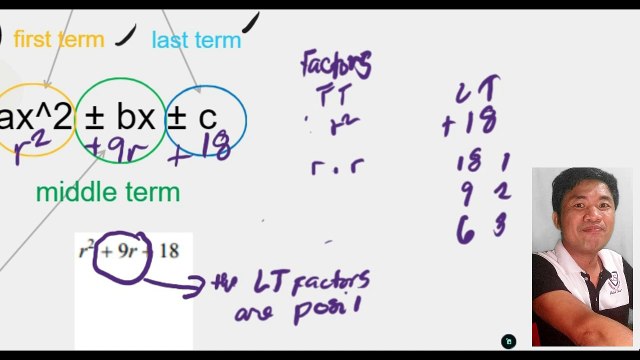 first term
last term
Factors
FT
LT
ax^2 ± bx ± c
r²
+18
r² +9r +18
r . r
18 1
9 2
6 3
middle term
r² + 9r + 18
the LT factors
are posi